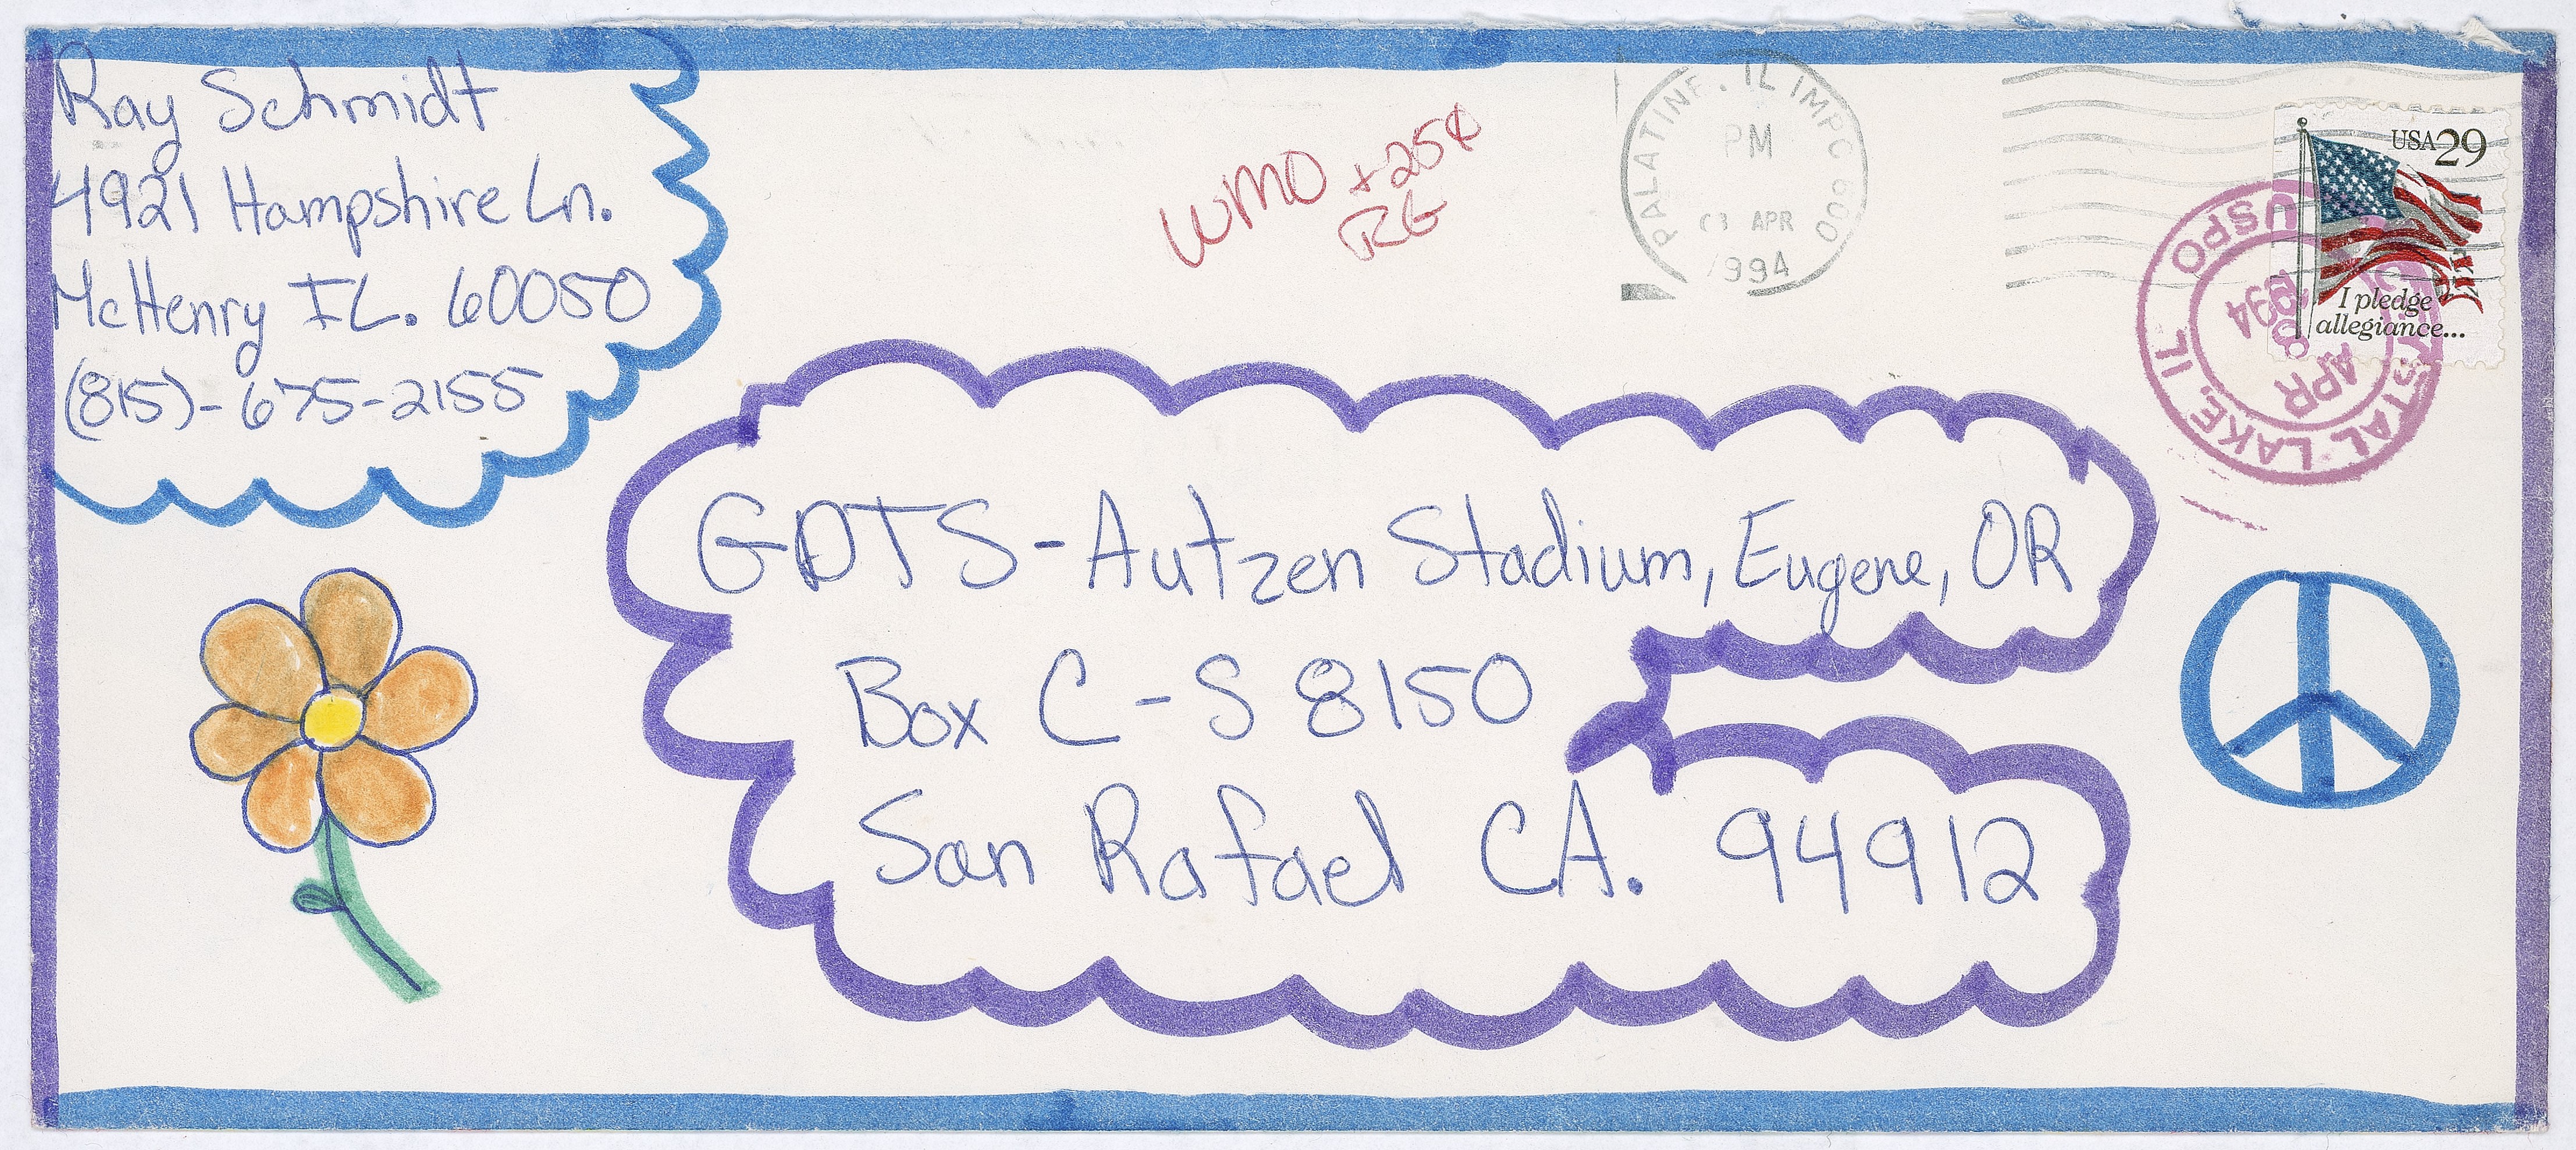 Ray Schmidt
4921 Hampshire Ln.
McHenry IL. 60050
(815)-675-2155
WMO +25¢
RG
PALATINE, IL IMPC 600
PM
APR
1994
USA 29
I pledge
allegiance...
USPO
STAL LAKE, IL
APR
8
1994
GDTS-Autzen Stadium, Eugene, OR
Box C-S 8150
San Rafael CA. 94912